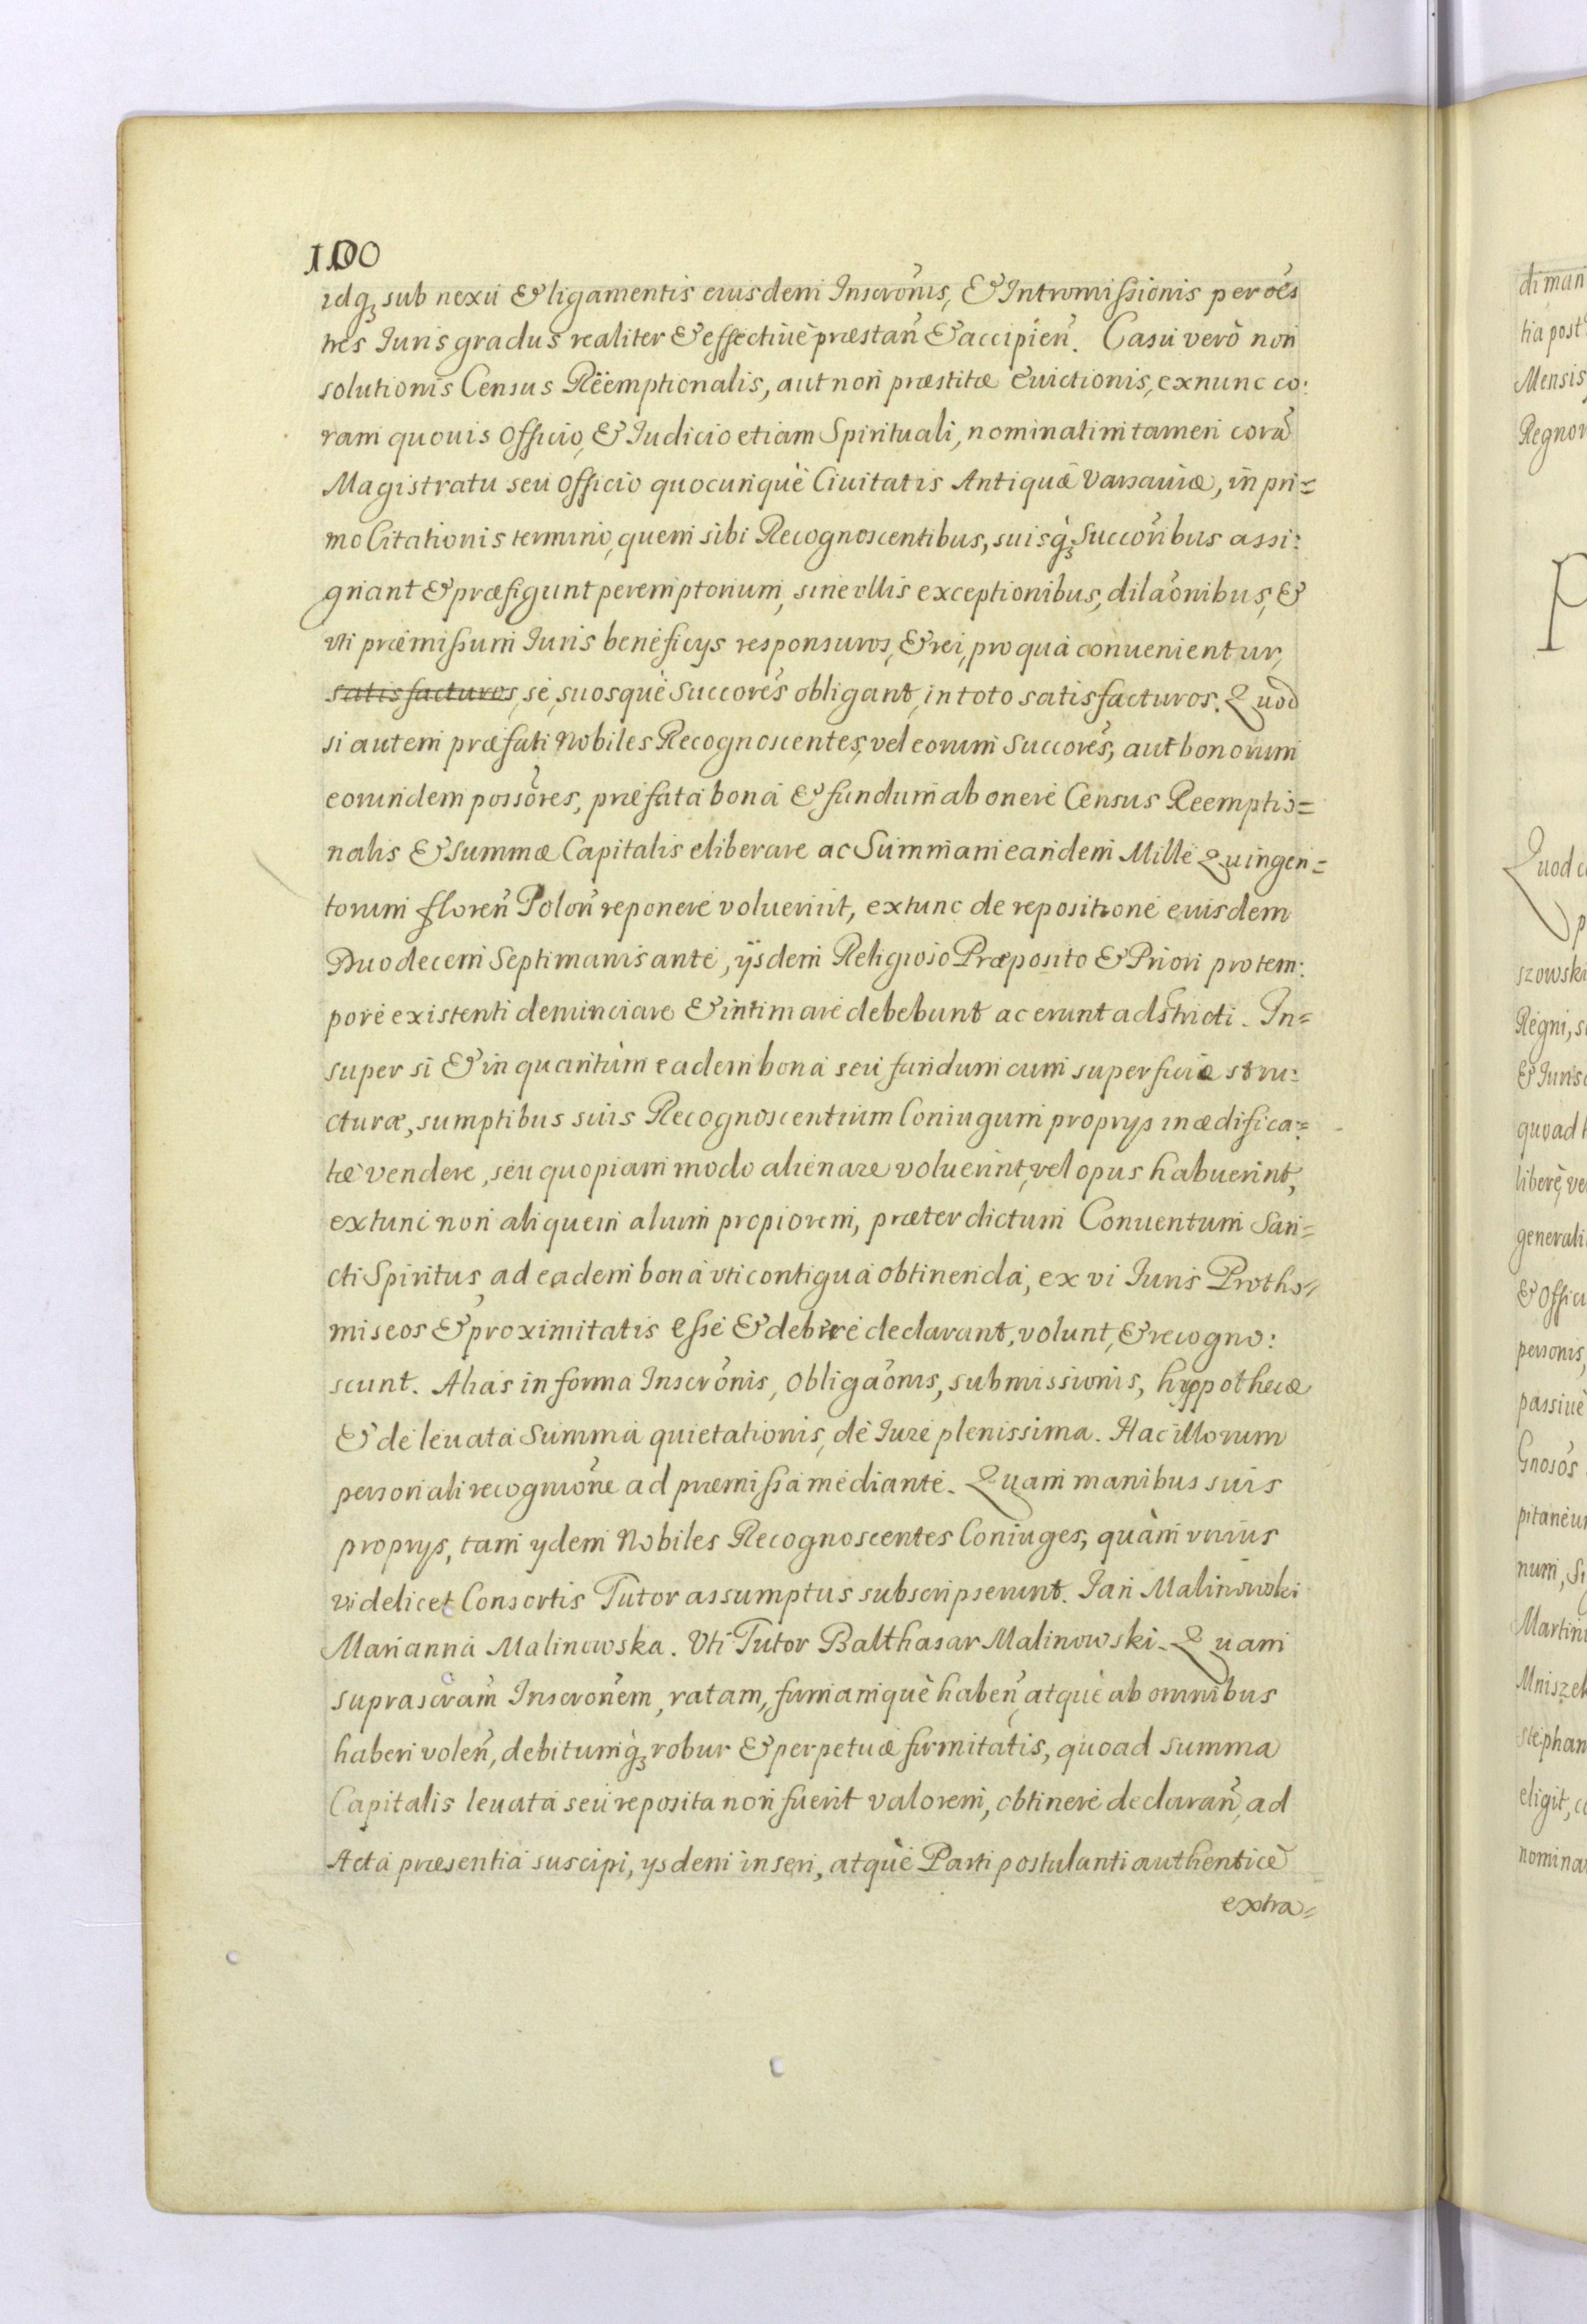 100
idq́ sub nexu & ligamentis eiusdem Inscrõnis, & Intromissionis per oẽs
tres Iuris gradus realiter & effectiuè præstañ & accipień. Casu verò non
solutionis Census Rëemptionalis, aut non præstitæ euictionis, ex nunc co:
ram quouis Officio, & Iudicio etiam Spirituali, nominatim tamen corã
Magistratu seu officio quocunquè Ciuitatis Antiquæ Varsauiæ, in pri=
mo Citationis termino, quem sibi Recognoscentibus, suisq́ Succoribus assi:
gnant & præfigunt peremptorium, sine vllis exceptionibus, dilãonibus, &
vti præmissum Iuris beneficys responsuros, & rei, pro qua conuenientur,
satisfacturos, se, suosquè Succores obligant, in toto satisfacturos. Quod
si autem præfati Nobiles Recognoscentes, vel eorum Succores, aut bonorum
eorundem possõres, præfata bona & fundum ab onere Census Reemptio=
nalis & Summæ Capitalis eliberare ac Summam eandem Mille Quingen=
torum floreñ Poloñ reponere voluerint, extunc de repositione eiusdem
Duodecem Septimanis ante, ÿsdem Religioso Præposito & Priori pro tem:
pore existenti denunciare & intimare debebunt ac erunt adstricti. In=
super si & in quantùm eadem bona seu fundum cum superficiæ stru=
cturæ, sumptibus suis Recognoscentium Coniugum proprys inædifica=
tæ vendere, seu quopiam modo alienare voluerint, vel opus habuerint,
extunc non aliquem alium propiorem, præter dictum Conuentum San=
cti Spiritus, ad eadem bona vti contigua obtinenda, ex vi Iuris Protho=
miseos & proximitatis esse & debere declarant, volunt, & recogno:
scunt. Alias in forma Inscrõnis, Obligãonis, submissionis, hyppothecæ
& de leuata Summa quietationis, de Iure plenissima. Hac illorum
personali recogniõne ad præmissa mediante. Quam manibus suis
proprys, tam ydem Nobiles Recognoscentes Coniuges, quàm vnius
videlicet Consortis Tutor assumptus subscripserunt. Jan Malinowski
Marianna Malinowska. Vti Tutor Balthasar Malinowski. Quam
suprascram̃ Inscrõnem, ratam, firmamquè habeñ, atquè ab omnibus
haberi voleñ, debitumq́ robur & perpetuæ firmitatis, quoad summa
Capitalis leuata seu reposita non fuerit valorem, obtinere declarañ, ad
Acta præsentia suscipi, ysdem inseri, atquè Parti postulanti authenticè
extra=